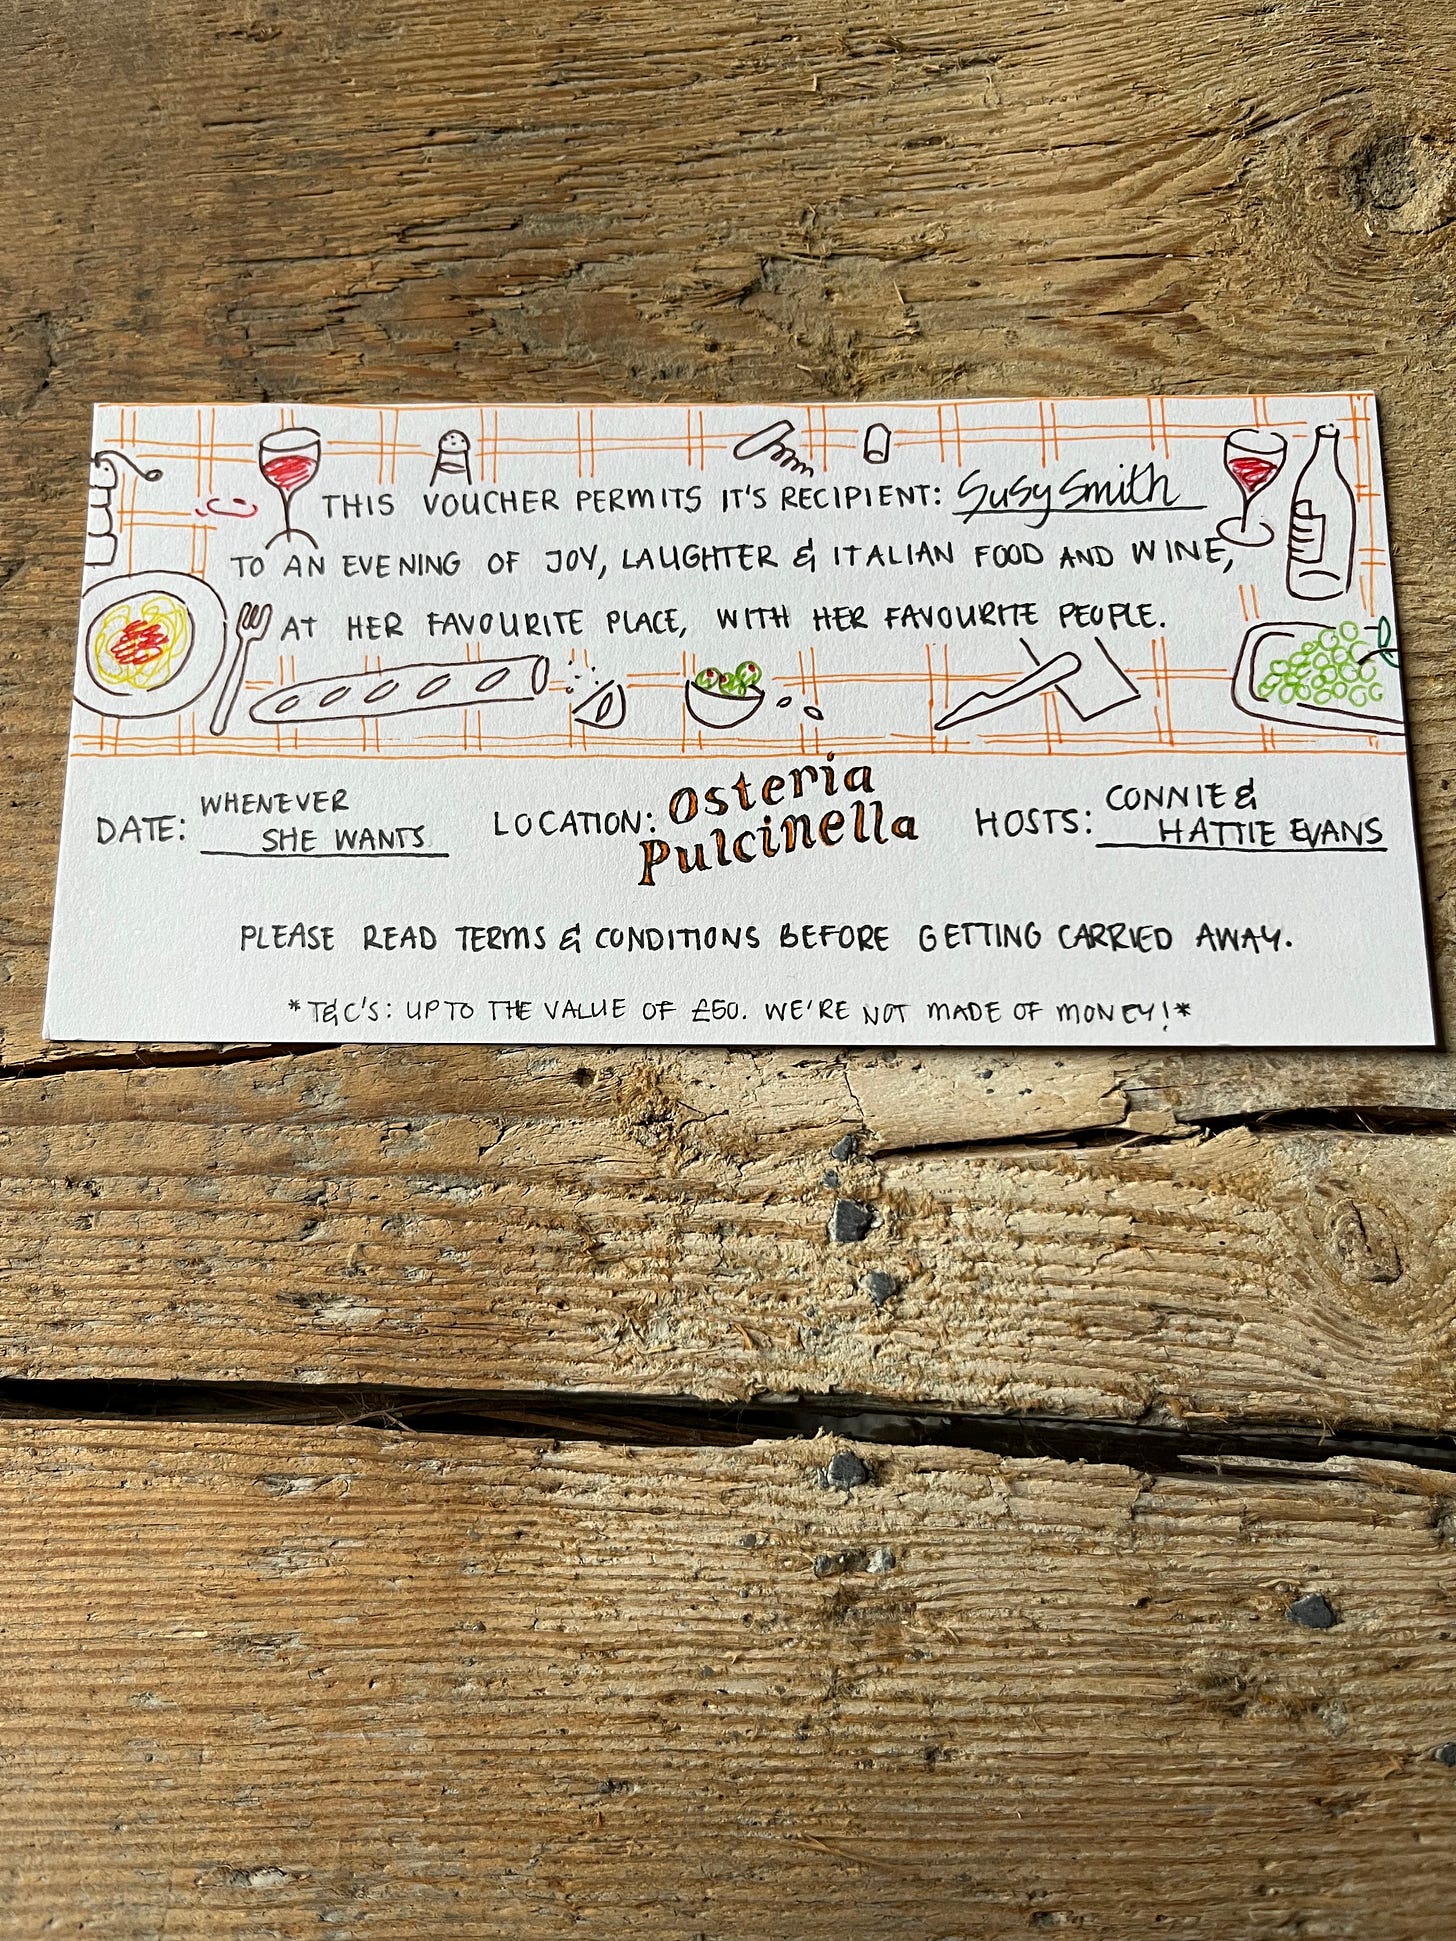 THIS VOUCHER PERMITS IT'S RECIPIENT: Susy Smith
TO AN EVENING OF JOY, LAUGHTER & ITALIAN FOOD AND WINE,
AT HER FAVOURITE PLACE, WITH HER FAVOURITE PEOPLE.
DATE: WHENEVER
SHE WANTS
LOCATION: Osteria
Pulcinella
HOSTS: CONNIE &
HATTIE EVANS
PLEASE READ TERMS & CONDITIONS BEFORE GETTING CARRIED AWAY.
*T&C'S: UP TO THE VALUE OF £50. WE'RE NOT MADE OF MONEY!*